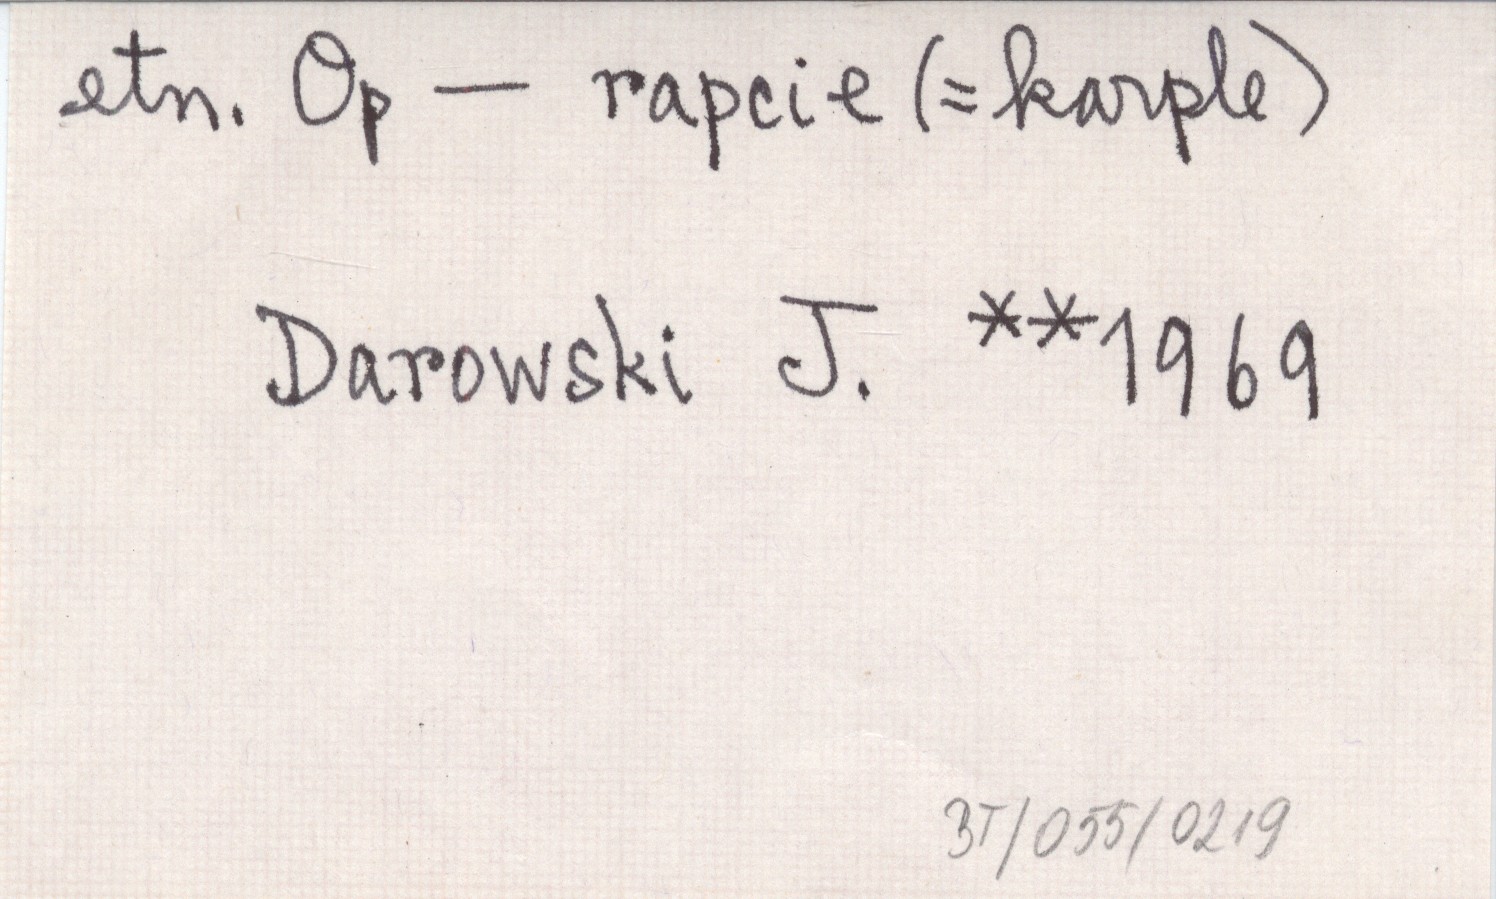 etn. Op — rapcie (=karple)
Darowski J. **1969
BT/055/0219